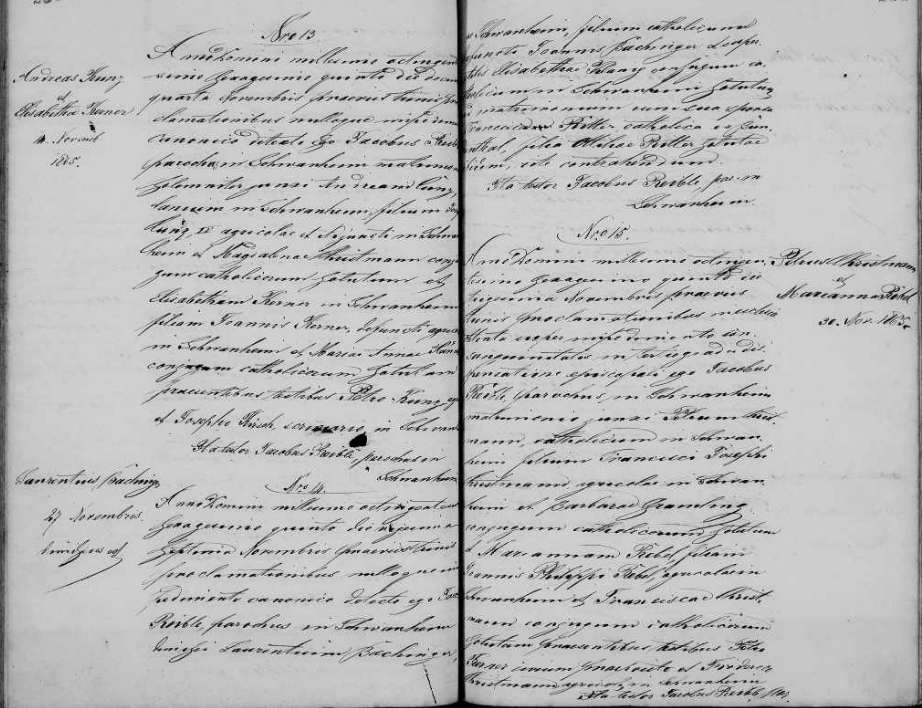 Nro 13.
Andreas Kunz
et
Elisabetha Kerner
Novemb
1865.
Anno Domini millesimo octingen
tesimo sexagesimo quinto die decima
quarta Novembris praeviis trinis pro
clamationibus nulloque impedimento
canonico detecto ego Jacobus Reible
parochus in Schwanheim matrimonio
solemniter junxi Andream Kunz,
in Schwanheim, filium
Kunz agricolae et defuncti in Schwan
heim et Magdalena Christmann conju
gum catholicorum solutum et
Elisabetham Kerner in Schwanheim
filiam Joannis Kerner, defuncti
in Schwanheim et Mariae Annae
conjugum catholicorum solutam
praesentibus testibus Petro Kunz
et Josepho Kirsch, in Schwan
Ita testor Jacobus Reible, parochus in
Schwanheim
Nro 14.
Laurentius Baching
27 Novembris
Anno Domini millesimo octingentesimo
sexagesimo quinto die vigesima
septima Novembris praeviis trinis
proclamationibus nulloque im
pedimento canonico detecto ego Jac
Reible, parochus in Schwanheim
dimisi Laurentium Bachinger,
Schwanheim, filium catholicum
defuncti Joannis Bachinger et
Elisabetha conjugum ca
tholicorum in Schwanheim solutum
ad matrimonium cum sua sponsa
Francisca Ritter catholica ex
filia Ritter soluta
rite contrahendum.
Ita testor Jacobus Reible, par. in
Schwanheim.
Nro 15.
Petrus Christmann
et
Marianna Riebel
30. Nov. 1865
Anno Domini millesimo octingen
tesimo sexagesimo quinto die
trigesima Novembris praeviis
trinis proclamationibus in ecclesia
super impedimento con
sanguinitatis in tertio gradu dis
pensatione episcopali ego Jacobus
Reible, parochus, in Schwanheim
matrimonio junxi Petrum Christ
mann, catholicum in Schwan
heim filium Francisci Josephi
Christmann agricolae in Schwan
heim et Barbarae
conjugum catholicorum solutum
et Mariannam Riebel, filiam
Joannis Philippi Riebel, agricolae in
Schwanheim et Franciscae Christ
mann conjugum catholicorum
solutam praesentibus testibus Petro
Kerner et
Christmann agricola, in Schwanheim
Ita testor Jacobus Reible, par.